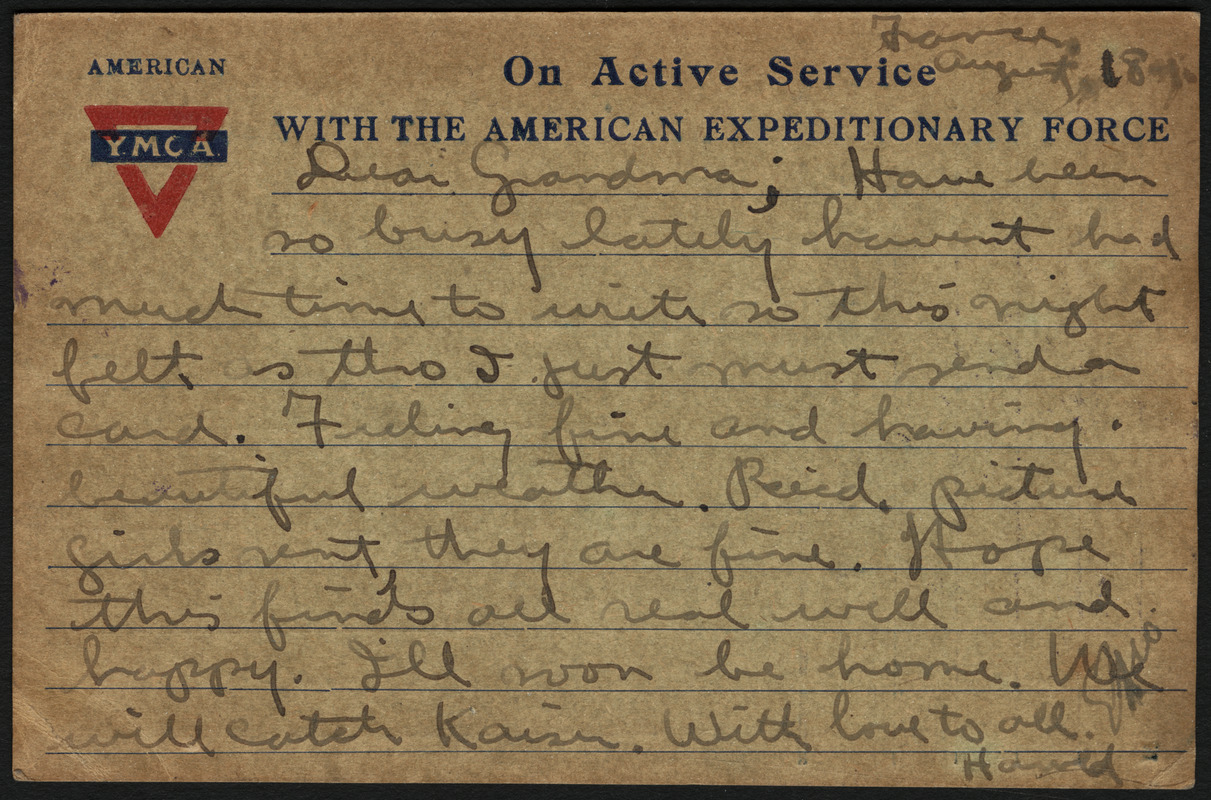 France,
August, 18
AMERICAN
YMCA
On Active Service
WITH THE AMERICAN EXPEDITIONARY FORCE
Dear Grandma; Have been
so busy lately havent had
much time to write so this night
felt as tho I just must send a
card. Feeling fine and having
beautiful weather. Recd. picture
girls sent they are fine. Hope
this finds all real well and
happy. I'll soon be home. We
will catch Kaiser. With love to all.
Harold